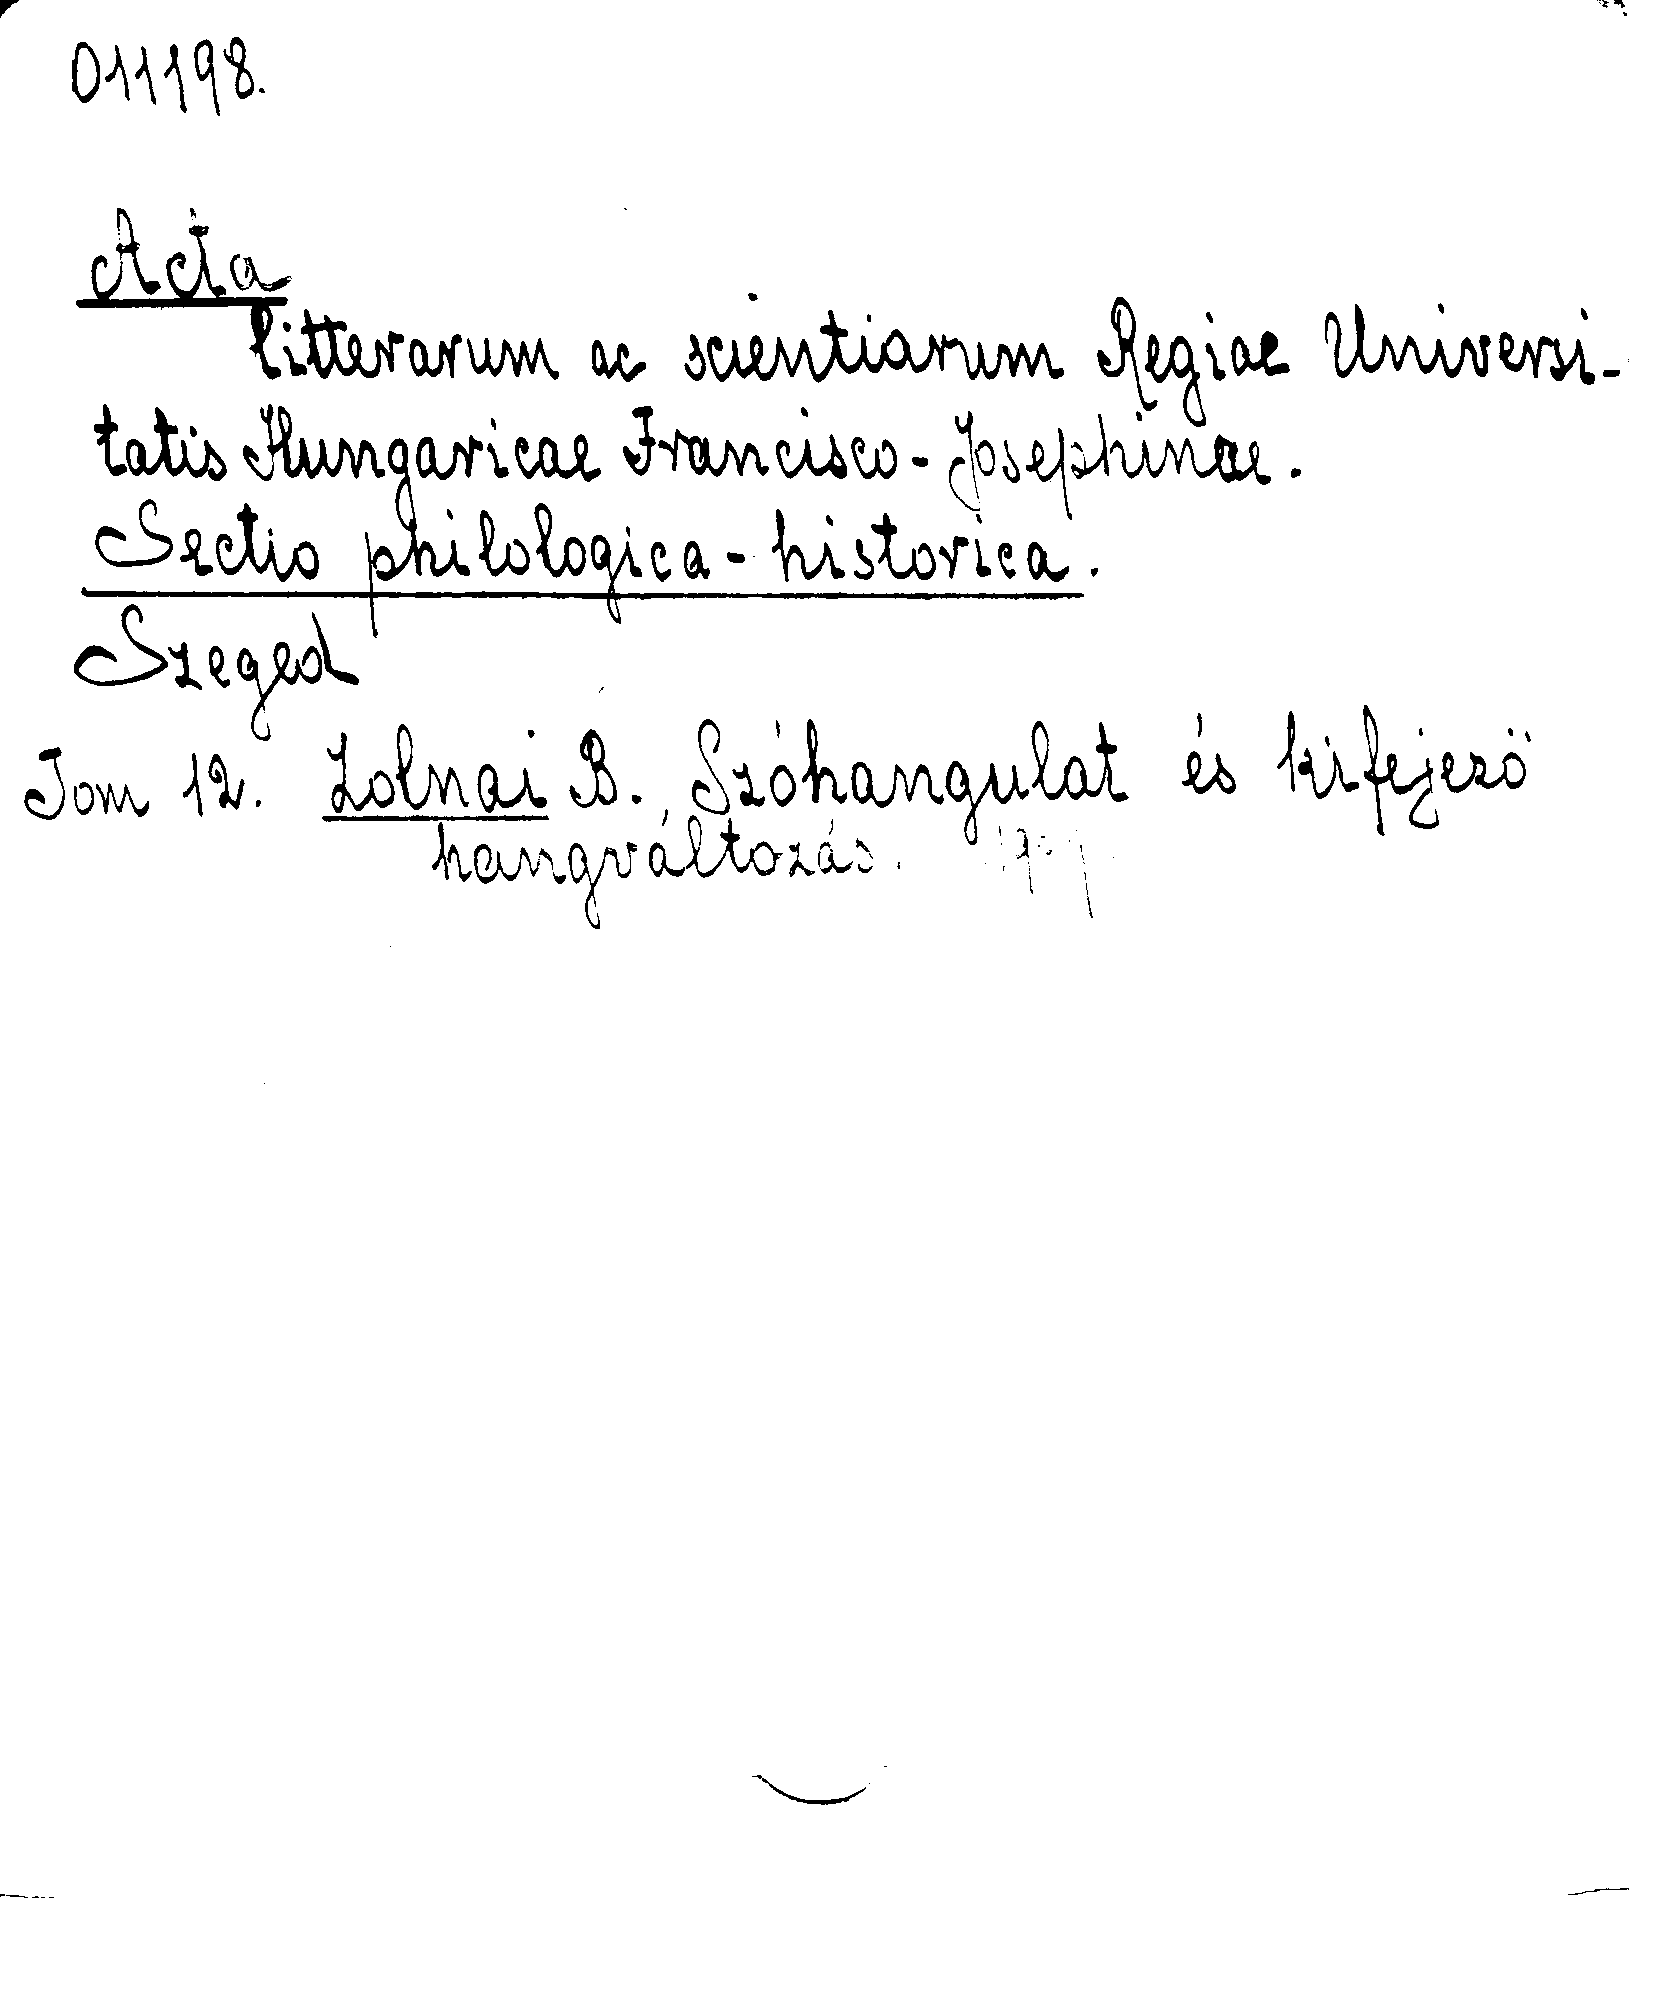 011198.
Acta
litterarum ac scientiarum Regiae Universi-
tatis Hungaricae Francisco-Josephinae.
Sectio philologica-historica.
Szeged
Tom 12. Zolnai B. Szóhangulat és kifejező
hangváltozás.